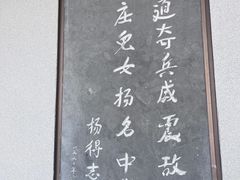 道奇兵威震敌
庄儿女扬名中
杨得志